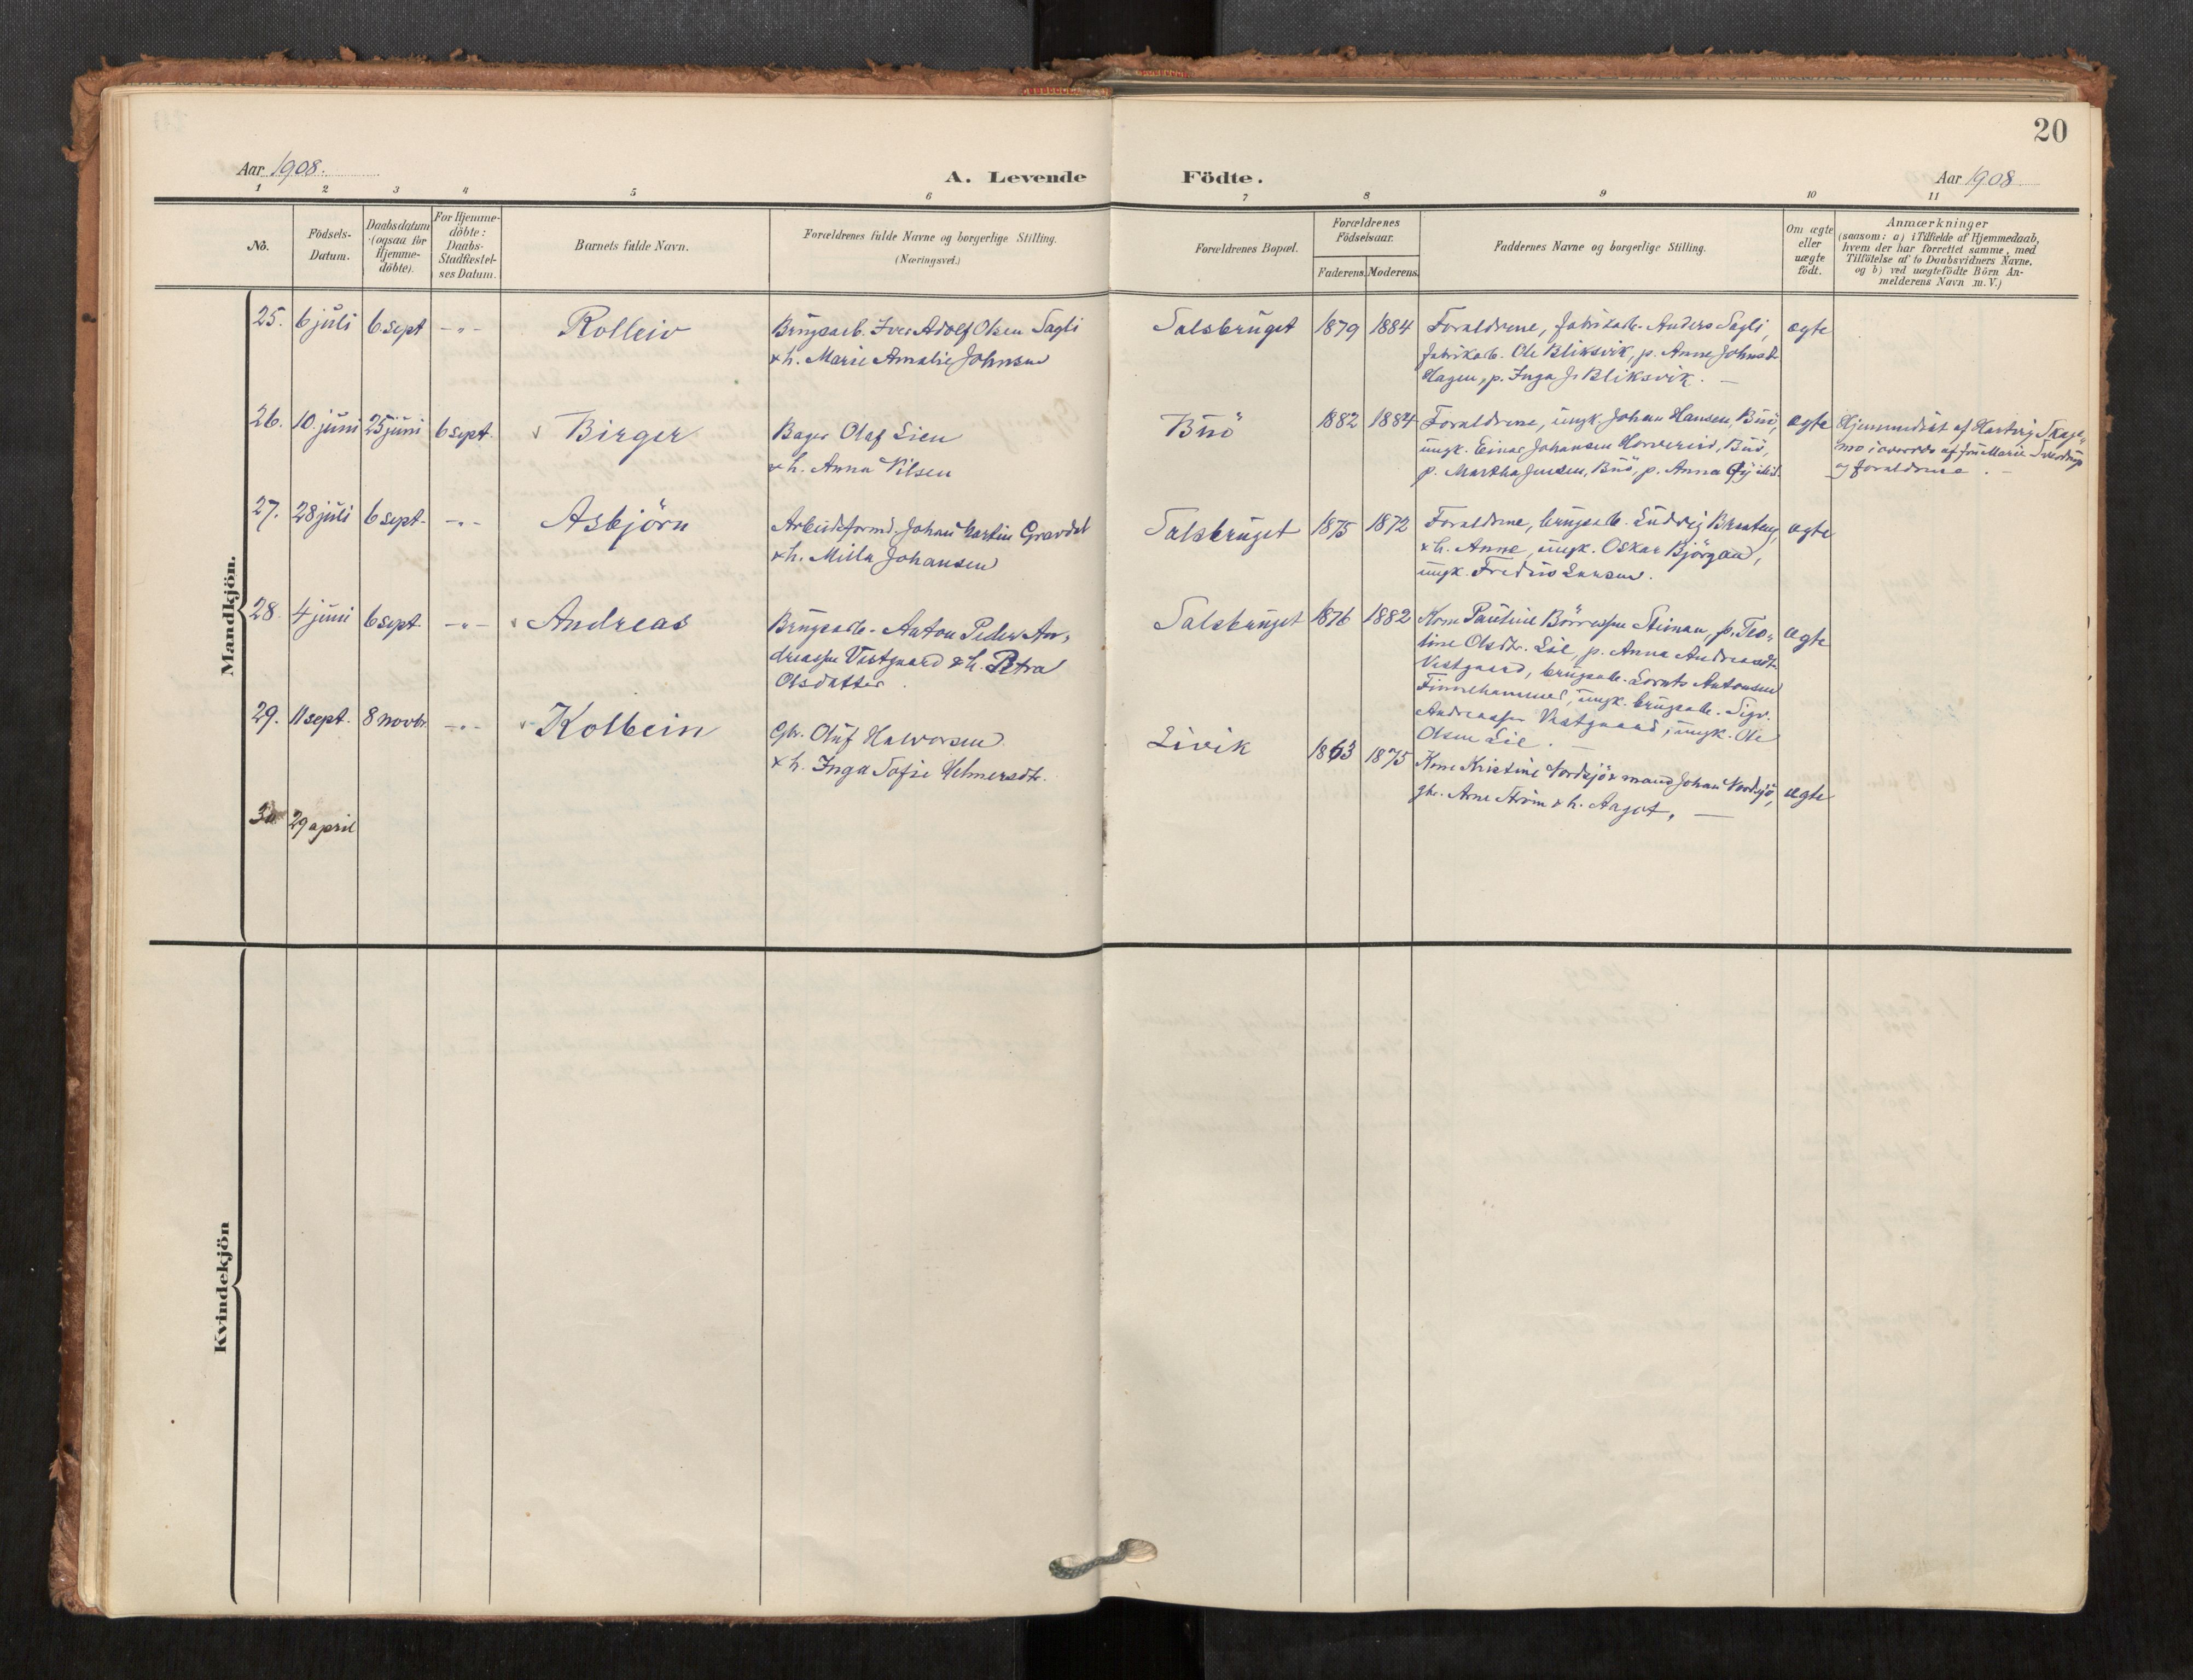 20
Aar 1908.
A. Levende Födte.
Aar 1908
1 2 3 4 5 6 7 8 9 10 11
No.
Födsels-
Datum.
Daabsdatum
(ogsaa for
Hjemme-
döbte).
For Hjemme-
döbte:
Daabs-
Stadfæstel-
ses Datum.
Barnets fulde Navn.
Forældrenes fulde Navne og borgerlige Stilling.
(Næringsvei.)
Forældrenes Bopæl.
Forældrenes
Födselsaar.
Faderens. Moderens.
Faddernes Navne og borgerlige Stilling.
Om ægte
eller
uægte
födt.
Anmærkninger
(saasom: a) i Tilfælde af Hjemmedaab,
hvem der har forrettet samme, med
Tilföielse af to Daabsvidners Navne,
og b) ved uægtefödte Börn An-
melderens Navn m. V.)
Mandkjön.
25. 6 juli 6 sept -"- Rolleiv
Brugsarb. Iver Adolf Olsen Sagli
& h. Marie Amalie Johnsen
Salsbruget 1879 1884
Forældrene, fabrikarb. Anders Sagli,
fabrikarb. Ole Bliksvik, p. Anne Johnsdr.
Hagen, p. Inga J. Bliksvik. —
ægte
26. 10. juni 25 juni 6 sept. Birger
Bager Olaf Lien
& h. Anna Nilsen
Buö 1882 1884
Forældrene, ungk. Johan Hansen, Buö,
ungk. Einar Johansen, Buö,
p. Martha Jensen, Buö, p. Anna
ægte
Hjemmedöbt af Hartvig Skage-
mo i overværelse af Marie
og forældrene. —
27. 28 juli 6 sept. -"- Asbjörn
Arbeidsformd. Johan Martin Gravdal
& h. Milla Johansen
Salsbruget 1875 1872
Forældrene, brugsarb. Ludvig Braaten,
& h. Anne, ungk. Oskar Björgan,
ungk. Larsen.
ægte
28. 4 juni 6 sept. -"- Andreas
Brugsarb. Anton Peder An-
dreassen Vestgaard & h. Petra
Olsdatter.
Salsbruget 1876 1882
Kone Pauline Börresen, p. Teo-
line Olsdr. Lie, p. Anna Andreasdr.
Vestgaard, brugsarb. Lornts Antonsen
Finnehammer, ungk. brugsarb. Sigv.
Andreassen Vestgaard, ungk. Ole
Olsen Lie. —
ægte
29. 11 sept. 8 novbr. -"- Kolbein
Gbr. Oluf Halvorsen
& h. Inga Sofie Helmersdtr.
Livik 1863 1875
Kone Kristine Nordsjö & mand Johan Nordsjö,
gbr. Arne Ström & h. Aagot. —
ægte
30 29 april
Kvindekjön